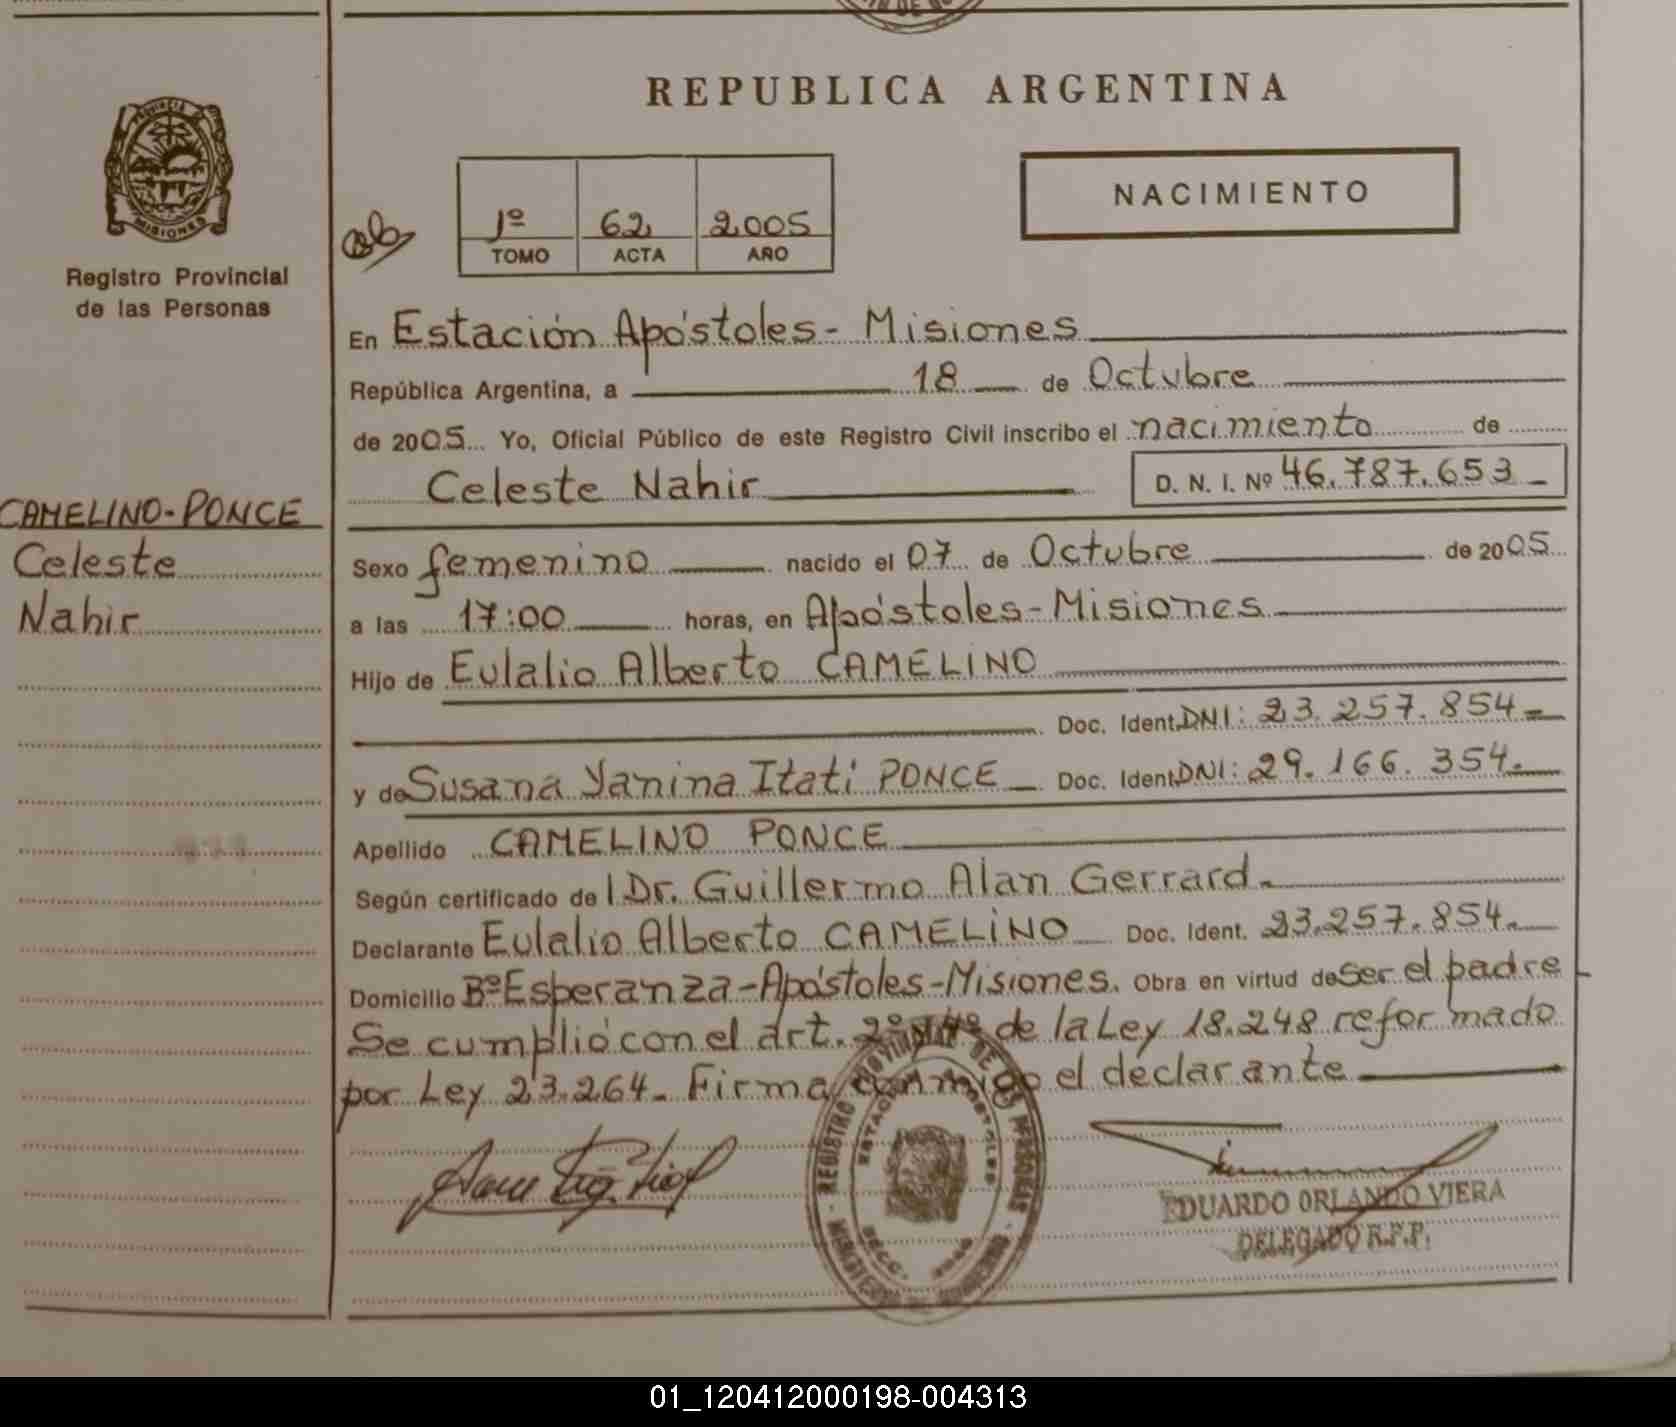 REPUBLICA ARGENTINA
PROVINCIA DE
MISIONES
Registro Provincial
de las Personas
1º 62 2005
TOMO ACTA AÑO
NACIMIENTO
En Estación Apóstoles - Misiones
República Argentina, a 18 de Octubre
de 2005 Yo, Oficial Público de este Registro Civil inscribo el nacimiento de
Celeste Nahir D. N. I. Nº 46.787.653
CAMELINO-PONCE
Celeste
Nahir
Sexo femenino nacido el 07 de Octubre de 2005
a las 17:00 horas, en Apóstoles - Misiones
Hijo de Eulalio Alberto CAMELINO
Doc. Ident. DNI: 23.257.854
y de Susana Yanina Itati PONCE Doc. Ident. DNI: 29.166.354.
Apellido CAMELINO PONCE
Según certificado de l Dr. Guillermo Alan Gerrard.
Declarante Eulalio Alberto CAMELINO Doc. Ident. 23.257.854.
Domicilio Bº Esperanza-Apóstoles-Misiones. Obra en virtud de ser el padre
Se cumplió con el art. 2º y 4º de la Ley 18.248 reformado
por Ley 23.264. Firma conmigo el declarante
REGISTRO PROVINCIAL DE LAS PERSONAS
ESTACION APOSTOLES
SECC.
EDUARDO ORLANDO VIERA
DELEGADO R.P.P.
01_120412000198-004313